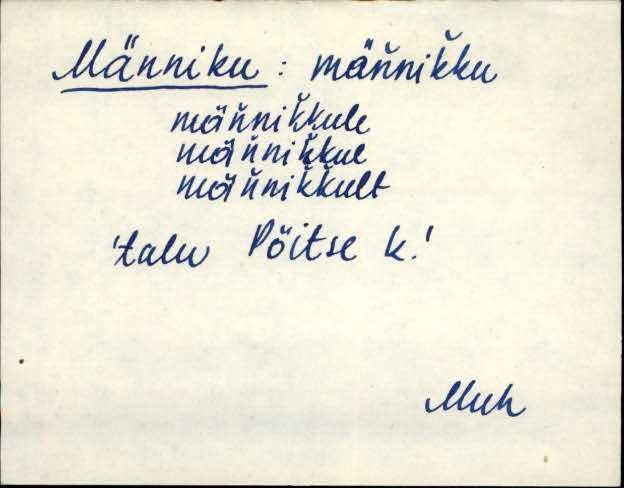 Männiku : mäňnikku
mäňnikkule
mäňnikkul
mäňnikkult
'talu Põitse k.'
Muh